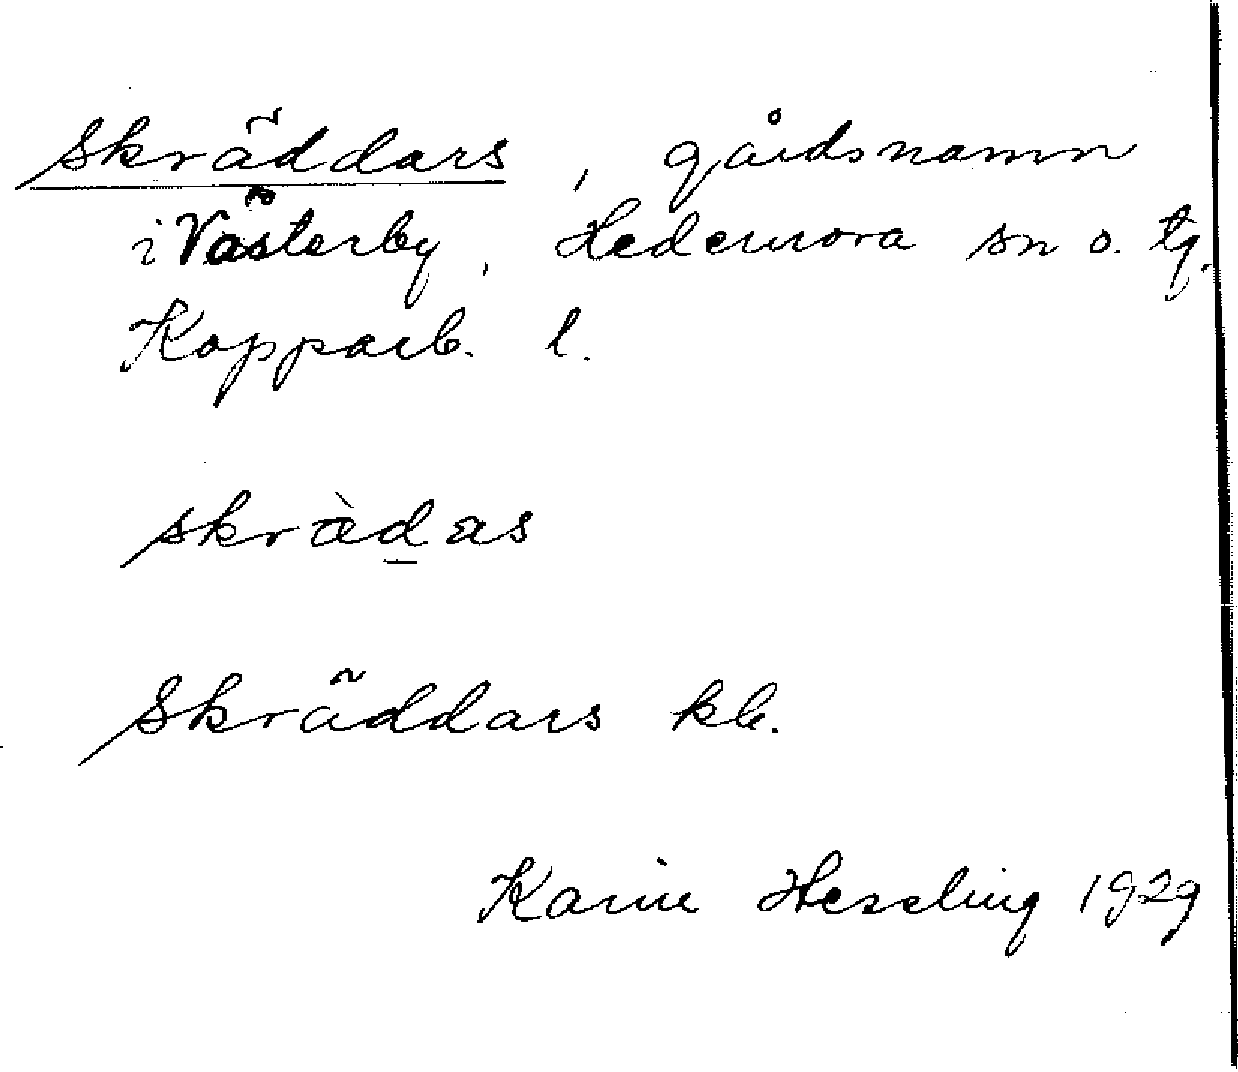 Skräddars, gårdsnamn
i Västerby, Hedemora sn o. tg.
Kopparb. l.
skràdas
Skräddars kb.
Karin Hessling 1929